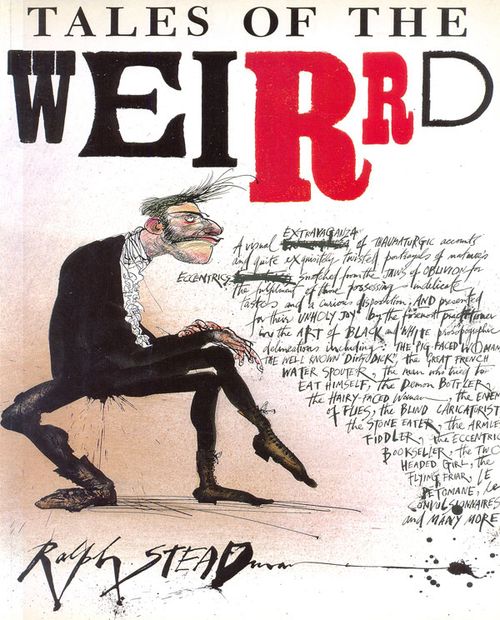 TALES OF THE
WEIRRD
EXTRAVAGANZA
A visual of THAUMATURGIC accounts
and quite exquisitely twisted portrayals of nature's
ECCENTRICS snatched from the JAWS of OBLIVION for
the fulfilment of those possessing indelicate
tastes and a curious disposition, AND presented
for their UNHOLY JOY by the foremost practitioner
in the ART of BLACK and WHITE prosopographic
delineations including: THE PIG FACED WOMAN,
THE WELL KNOWN "DICKY DICK", the GREAT FRENCH
WATER SPOUTER, the man who tried to
EAT HIMSELF, the Demon BOTTLER,
the HAIRY-FACED Woman, the ENEMY
of FLIES, the BLIND CARICATURIST
the STONE EATER, the ARMLESS
FIDDLER, the ECCENTRIC
BOOKSELLER, the TWO
HEADED GIRL, the
FLYING FRIAR, LE
PETOMANE, Les
CONVULSIONNAIRES
and MANY MORE
Ralph STEADman